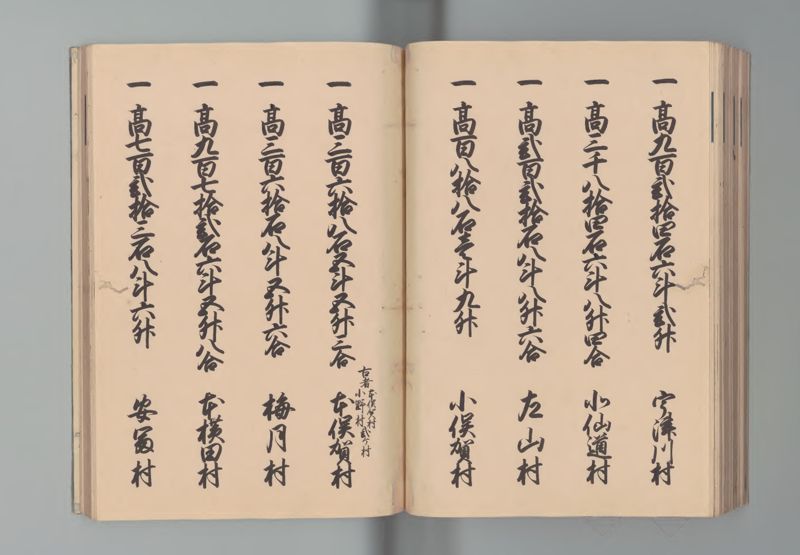 一 高九百弐拾四石六斗弐升 宇津川村
一 高二千八拾四石六斗八升四合 北仙道村
一 高弐百弐拾石八斗八升六合 左山村
一 高百八拾八石壱斗九升 小俣賀村
一 高三百六拾八石五斗五升三合 本俣賀村
古者 本俣賀村 小野村 弐ケ村
一 高三百六拾石八斗五升六合 梅月村
一 高九百七拾弐石六斗五升八合 本横田村
一 高七百弐拾三石八斗六升 安冨村